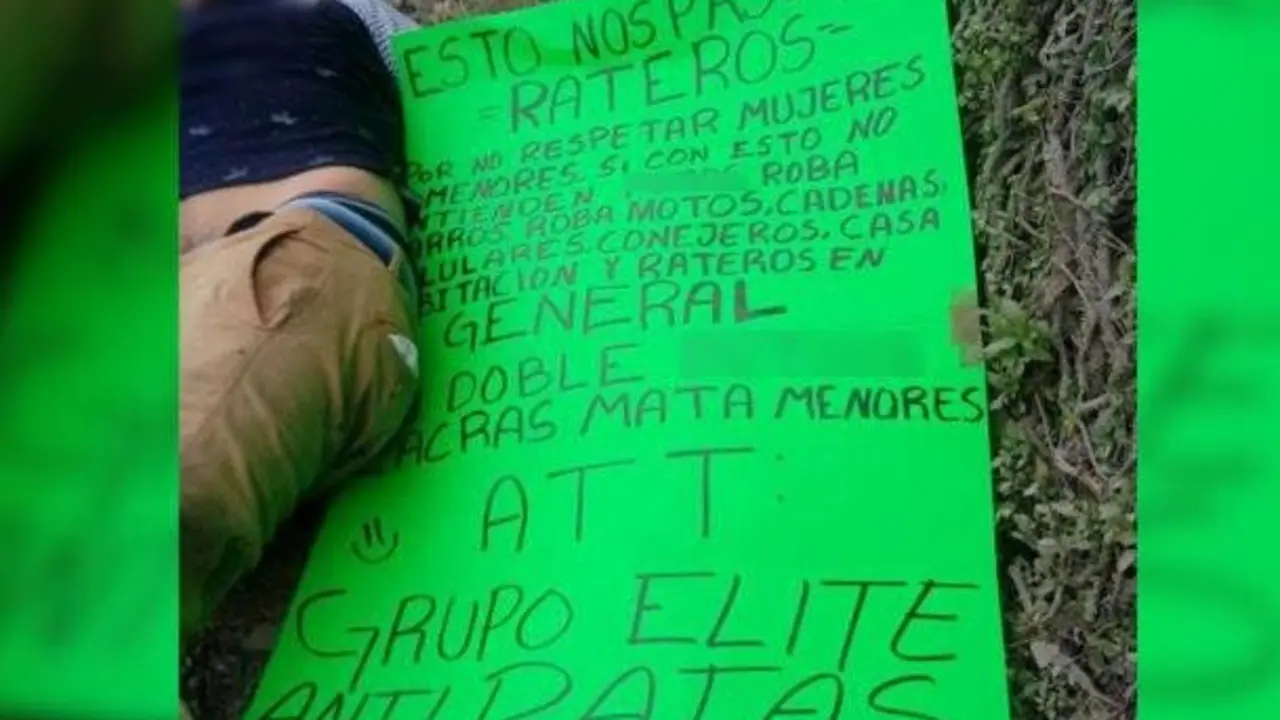 ESTO NOS PAS
=RATEROS=
POR NO RESPETAR MUJERES
MENORES. SI CON ESTO NO
NTIENDEN ROBA
ARROS. ROBA MOTOS. CADENAS.
LULARES. CONEJEROS. CASA
BITACION Y RATEROS EN
GENERAL
DOBLE
ACRAS MATA MENORES
ATT:
GRUPO ELITE
ANTI RATAS